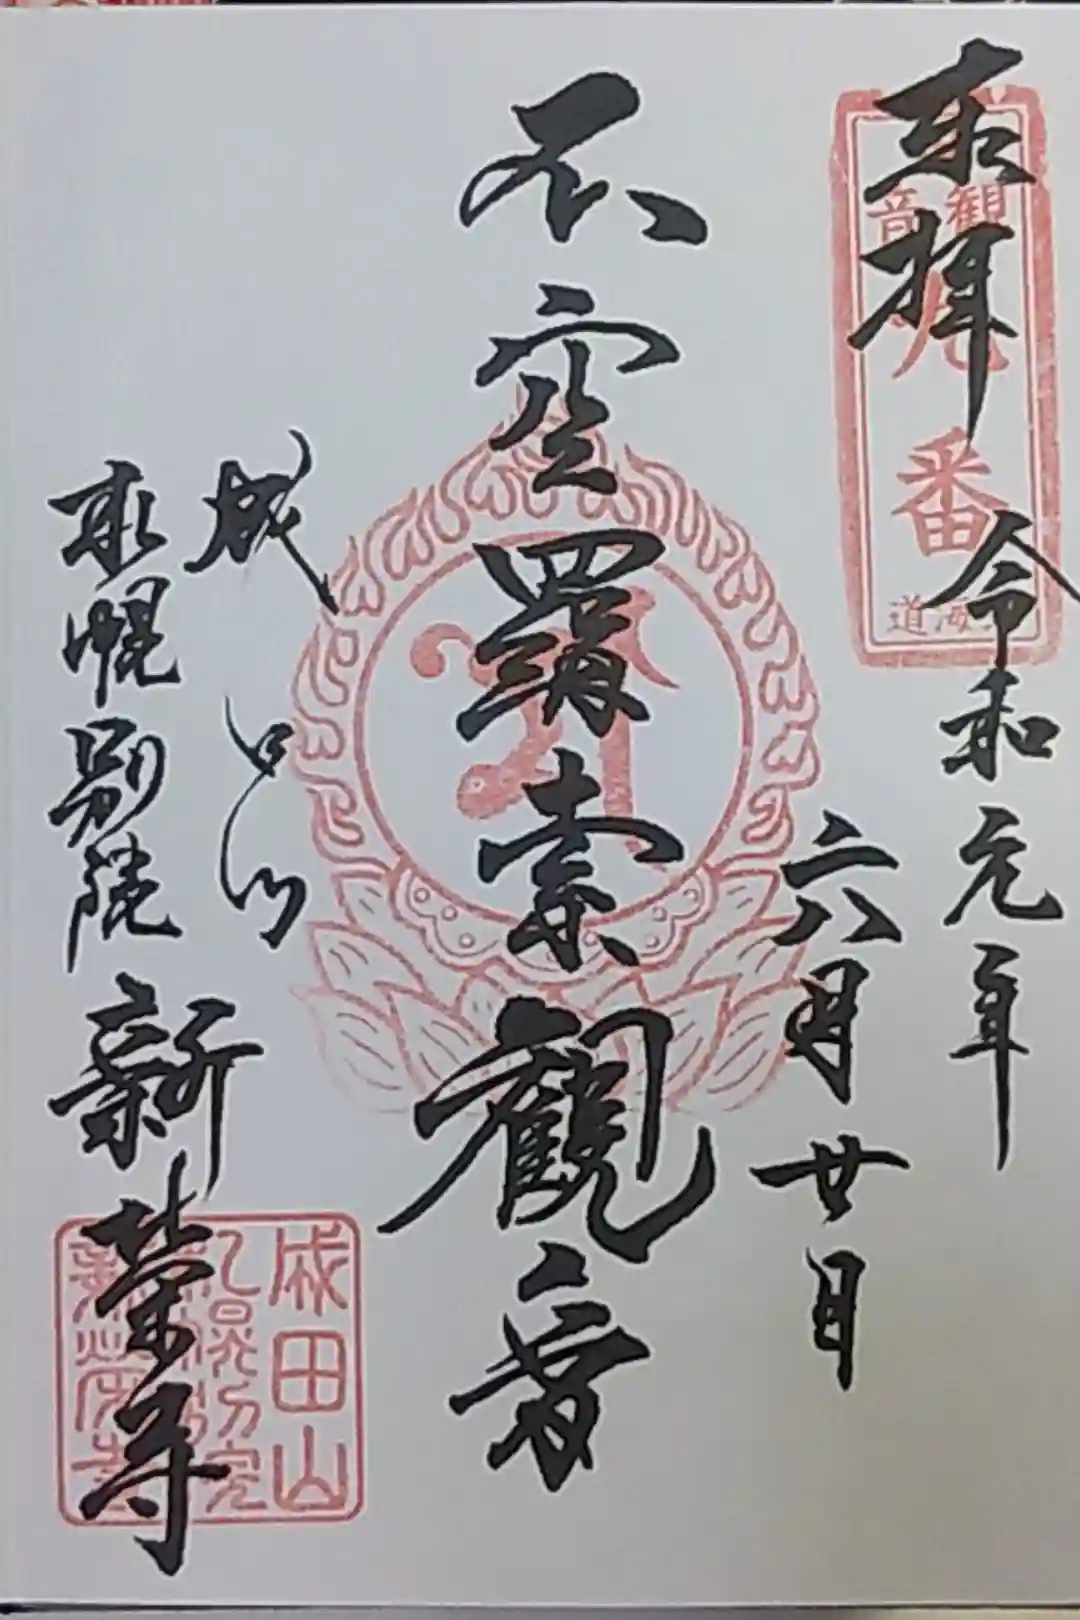 奉拝 令和元年
六月廿日
不空羂索觀音
成田山
札幌別院 新栄寺
観音
番
成田山
札幌別院
新栄寺